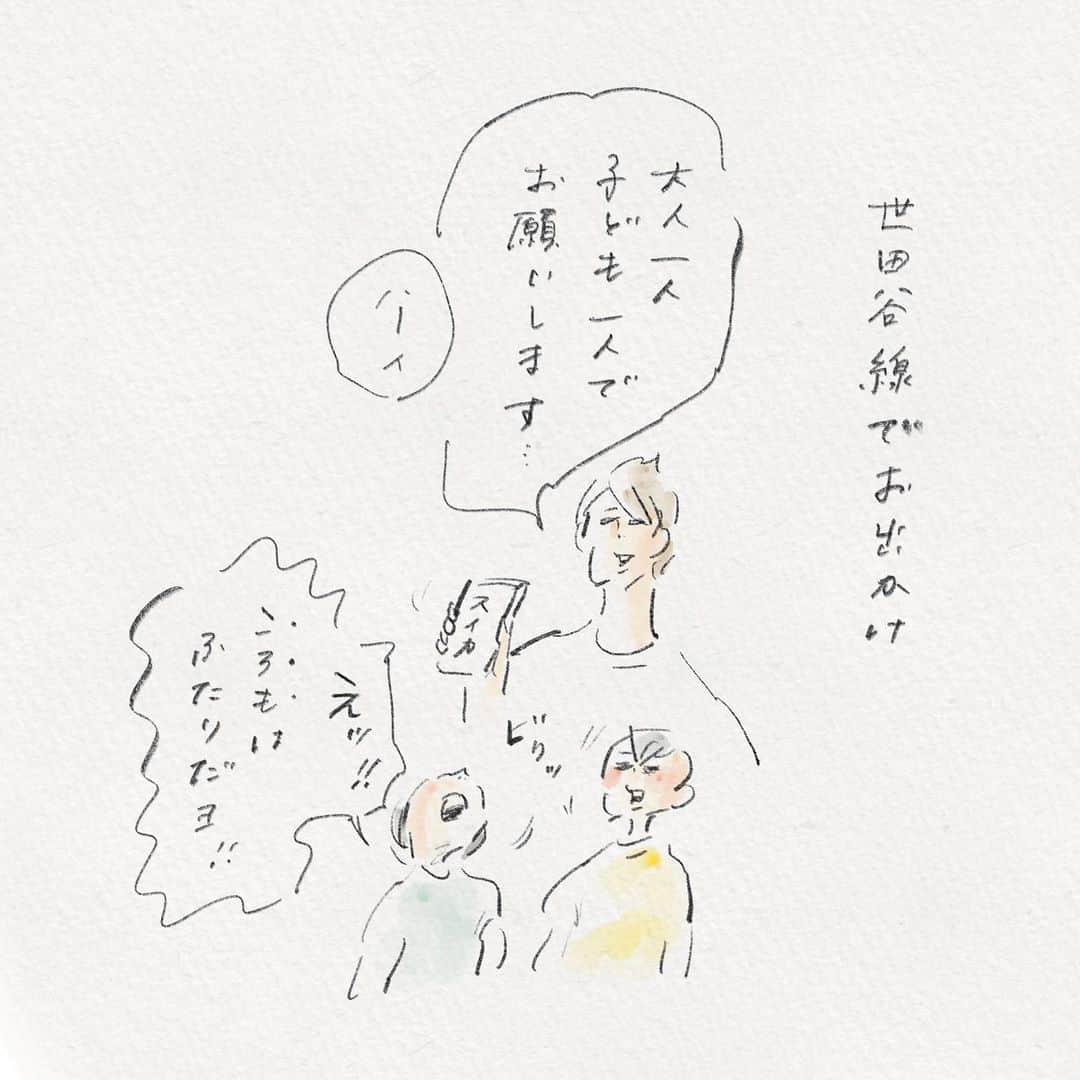 世田谷線でお出かけ
大人一人
子ども一人で
お願いします…
ハーイ
スイカ
ビクッ
えッ!!
こ゛ろもは
ふたりだヨ!!